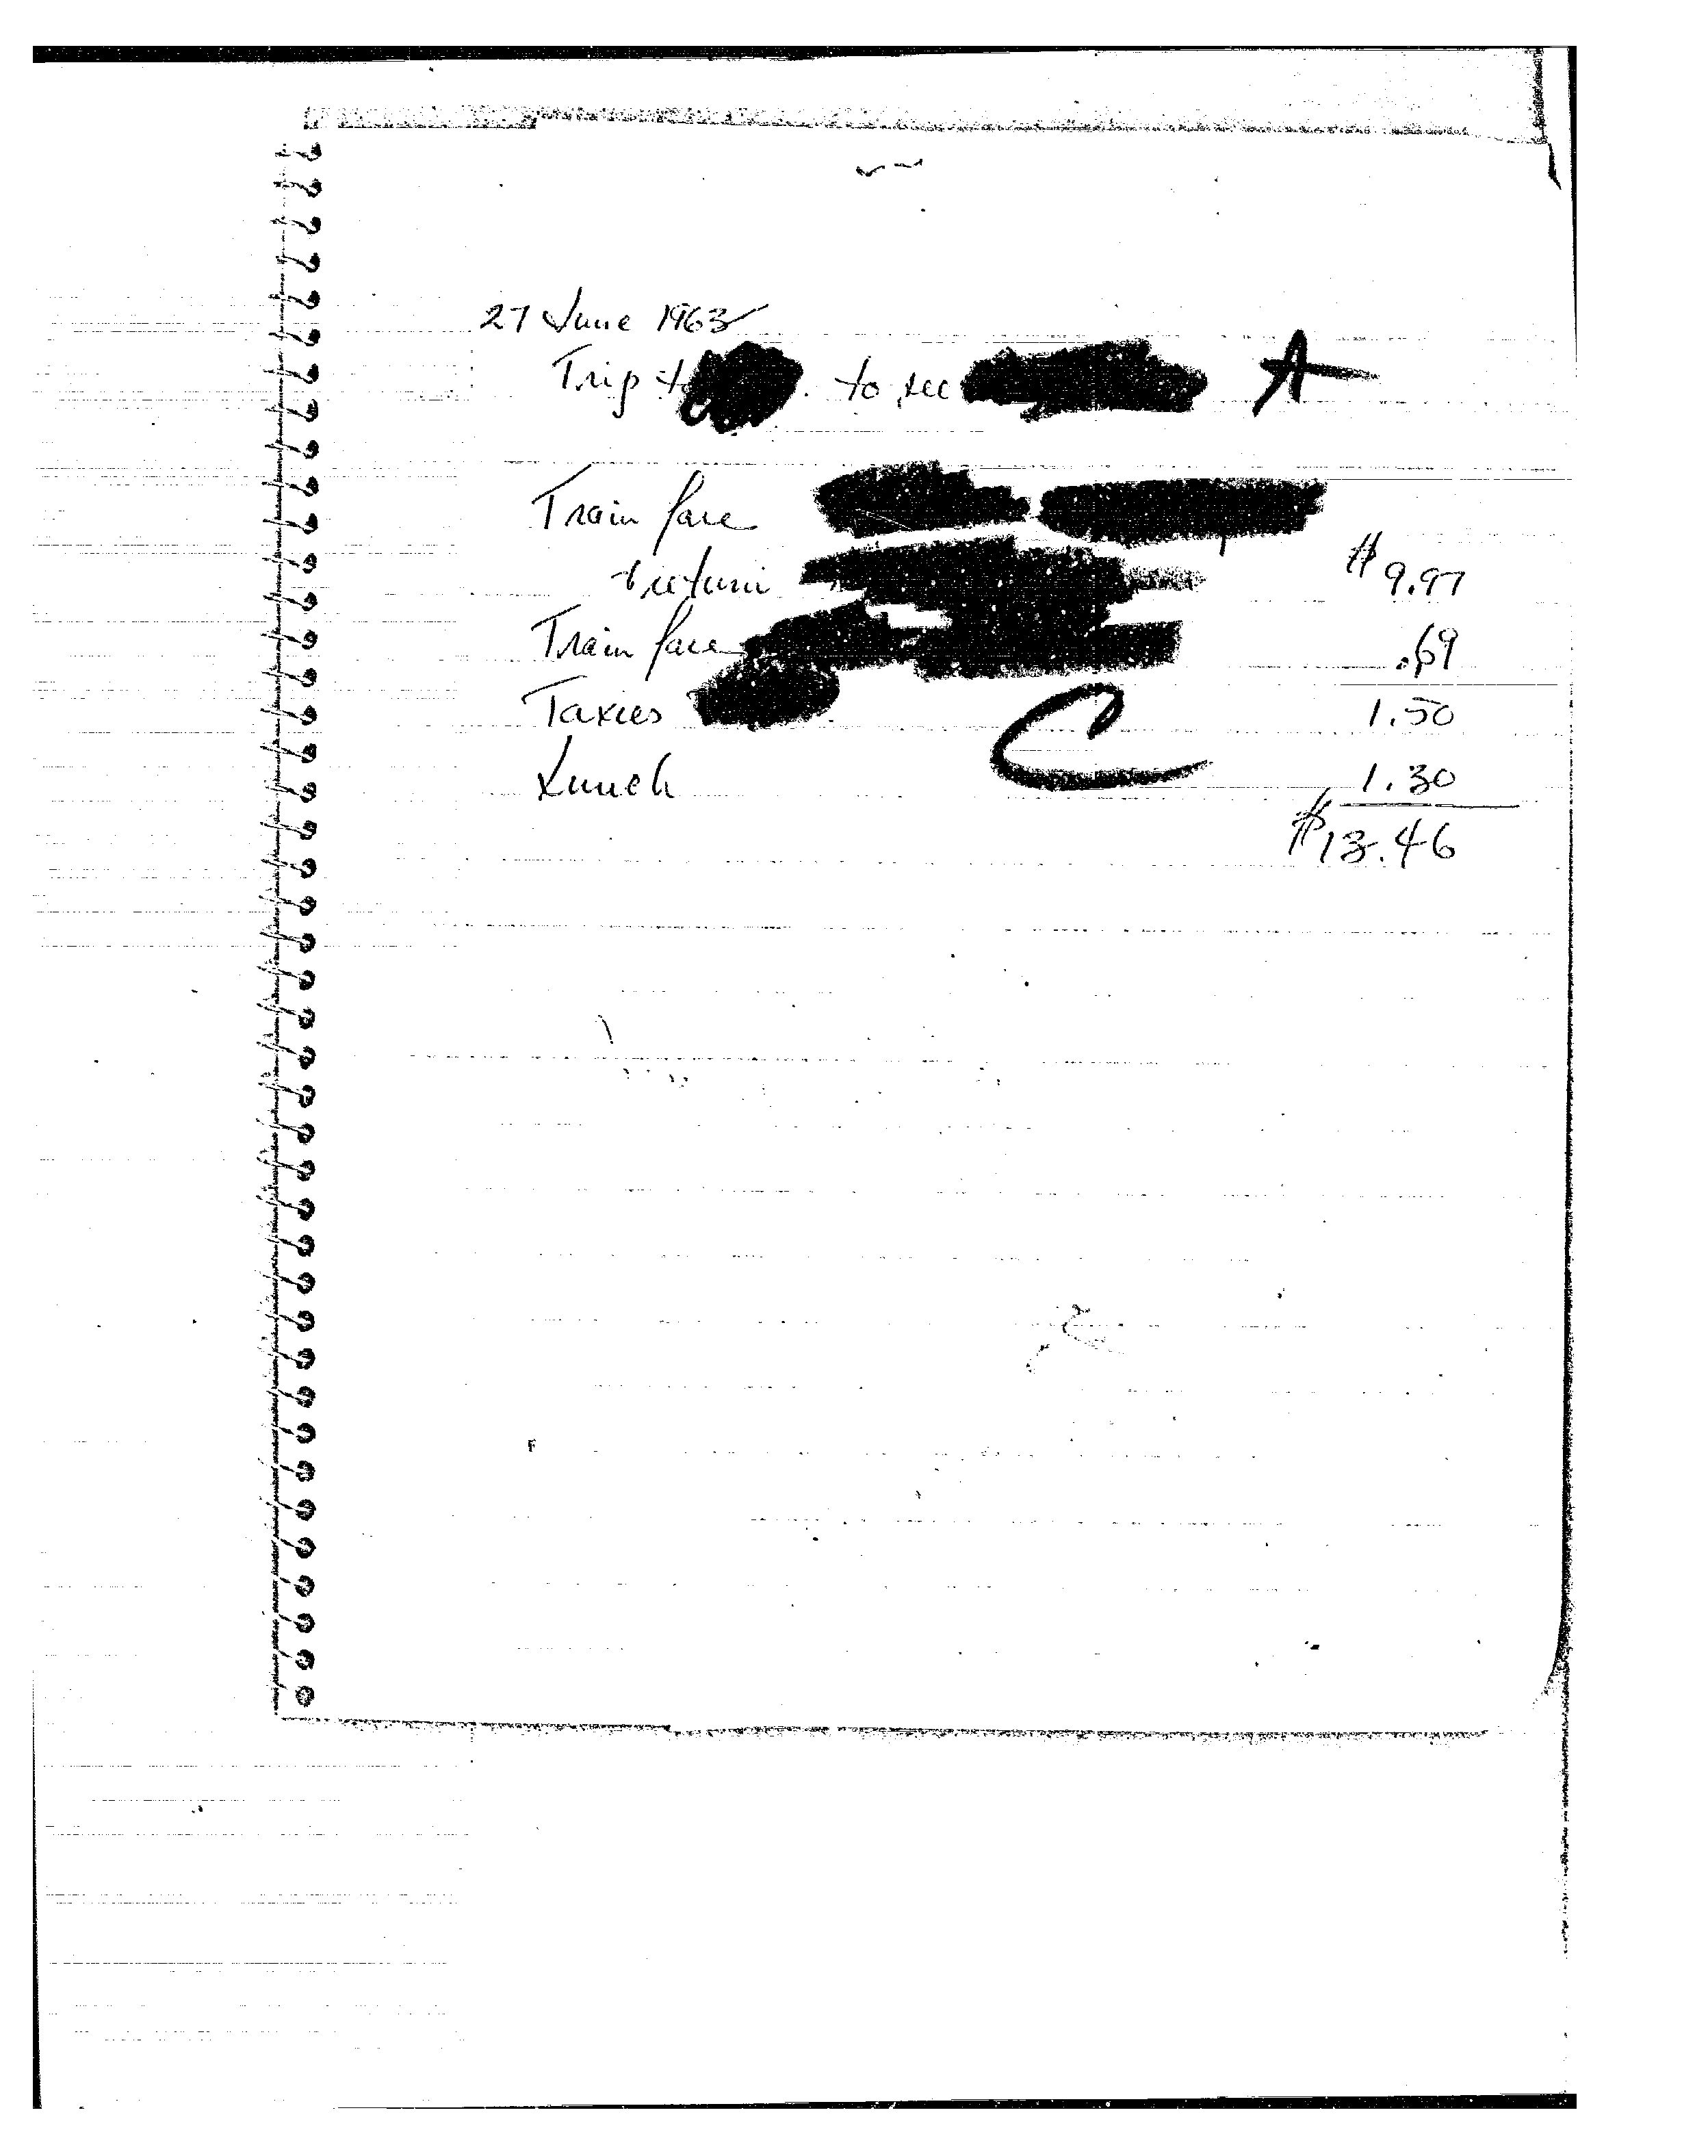 27 June 1963
Trip to to see A
Train fare
& return $9.97
Train fare .69
Taxies C 1.50
Lunch 1.30
$13.46